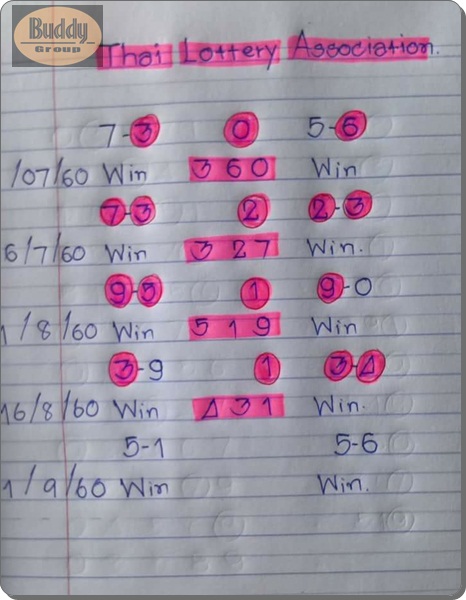 Buddy
Group
Thai Lottery Association.
7-3 0 5-6
/07/60 Win 360 Win
7-3 2 2-3
6/7/60 Win 327 Win.
9-5 1 9-0
1/8/60 Win 519 Win
3-9 1 3-4
16/8/60 Win 431 Win.
5-1 5-6
1/9/60 Win Win.